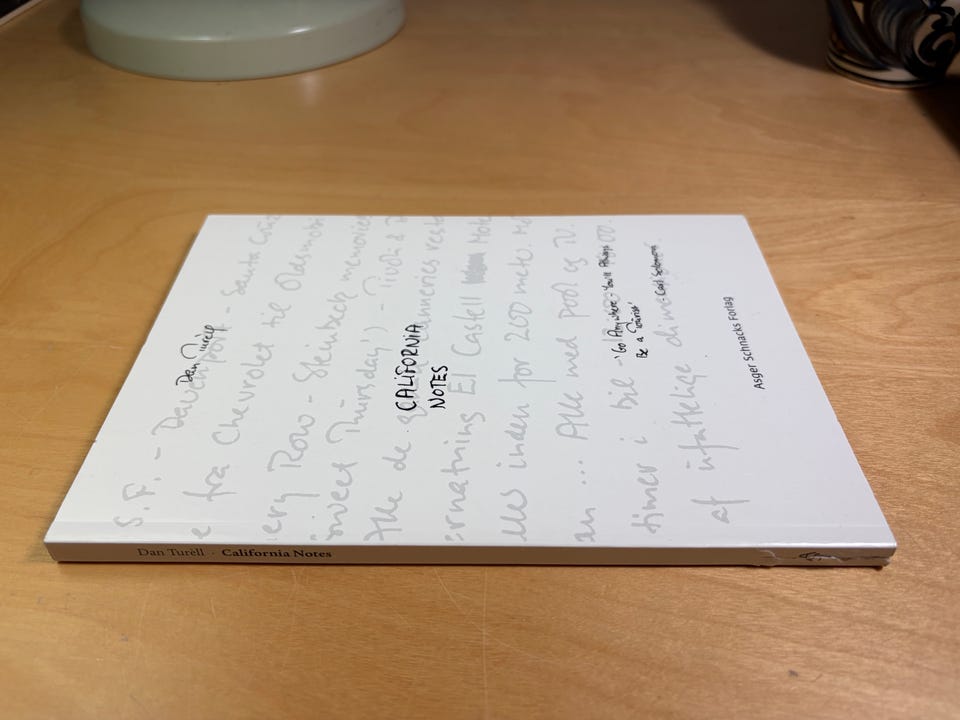 Dan Turèll
CALIFORNIA
NOTES
'Go Anywhere - You'll Always
Be a Tourist'
- Carl Solomon
Asger Schnacks Forlag
S. F. - Davenport - Santa Cruz
e fra Chevrolet til Oldsmobi
ery Row - Steinbeck memories
Sweet Thursday', - Tivoli &
alle de canneries resta
ernatning El Castell Mote
lle inden for 200 meter. Mo
an ... Alle med pool og TV.
timer i bil -
af ufattelige dimen
Dan Turèll · California Notes